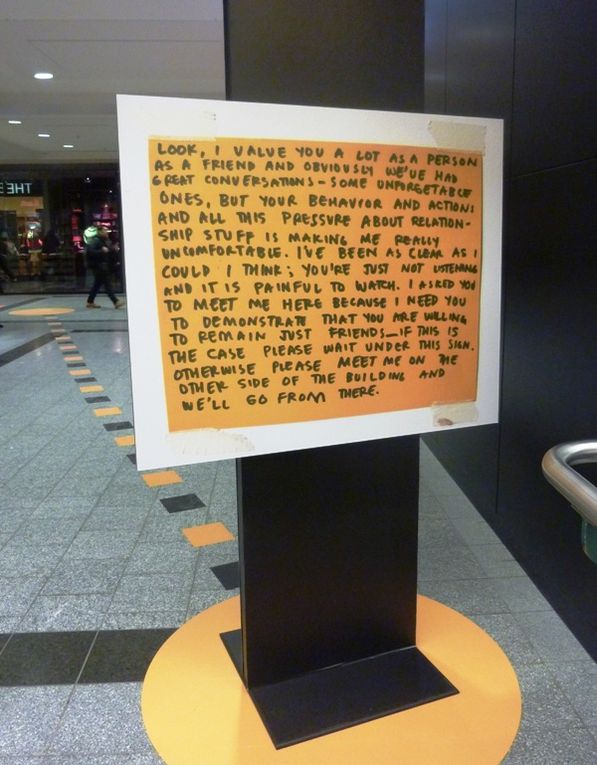 LOOK, I VALUE YOU A LOT AS A PERSON
AS A FRIEND AND OBVIOUSLY WE'VE HAD
GREAT CONVERSATIONS – SOME UNFORGETABLE
ONES, BUT YOUR BEHAVIOR AND ACTIONS
AND ALL THIS PRESSURE ABOUT RELATION-
SHIP STUFF IS MAKING ME REALLY
UNCOMFORTABLE. I'VE BEEN AS CLEAR AS I
COULD I THINK; YOU'RE JUST NOT LISTENING
AND IT IS PAINFUL TO WATCH. I ASKED YOU
TO MEET ME HERE BECAUSE I NEED YOU
TO DEMONSTRATE THAT YOU ARE WILLING
TO REMAIN JUST FRIENDS—IF THIS IS
THE CASE PLEASE WAIT UNDER THIS SIGN.
OTHERWISE PLEASE MEET ME ON THE
OTHER SIDE OF THE BUILDING AND
WE'LL GO FROM THERE.